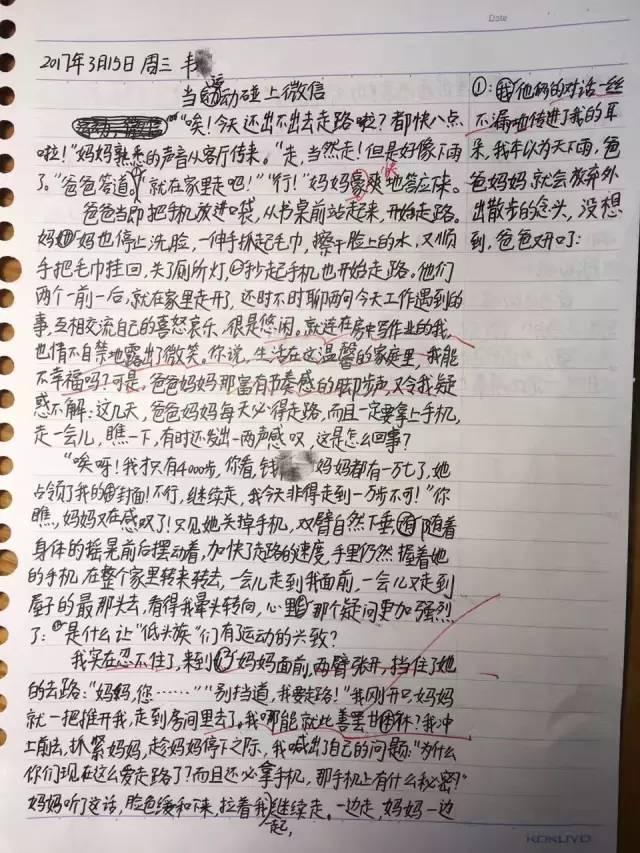 Date
2017年3月15日 周三 韦
当运动碰上微信
“唉！今天还出不出去走路啦？都快八点
啦！”妈妈熟悉的声音从客厅传来。“走，当然走！但是好像下雨
了。”爸爸答道，“就在家里走吧！”“行！”妈妈爽快地答应下来。
爸爸当即把手机放进口袋，从书桌前站起来，开始走路。
妈妈也停止洗脸，一伸手抓起毛巾，擦干脸上的水，又顺
手把毛巾挂回，关了厕所灯，抄起手机也开始走路。他们
两个一前一后，就在家里走开了，还时不时聊两句今天工作遇到的
事，互相交流自己的喜怒哀乐，很是悠闲。就连在房中写作业的我，
也情不自禁地露出了微笑。你说，生活在这温馨的家庭里，我能
不幸福吗？可是，爸爸妈妈那富有节奏感的脚步声，又令我疑
惑不解：这几天，爸爸妈妈每天必得走路，而且一定要拿上手机，
走一会儿，瞧一下，有时还发出一两声感叹，这是怎么回事？
“唉呀！我才只有4000步，你看，钱妈妈都有一万七了，她
占领了我的封面！不行，继续走，我今天非得走到一万步不可！”你
瞧，妈妈又在感叹了！只见她关掉手机，双臂自然下垂，随着
身体的摇晃前后摆动着，加快了走路的速度，手里仍然握着她
的手机，在整个家里转来转去，一会儿走到我面前，一会儿又走到
屋子的最那头去，看得我晕头转向，心里那个疑问更加强烈
了：是什么让“低头族”们有了运动的兴致？
我实在忍不住了，来到妈妈面前，两臂张开，挡住了她
的去路：“妈妈，您……”“别挡道，我要走路！”我刚开口，妈妈
就一把推开我，走到房间里去了。我哪能就此善罢甘休？我冲
上前去，抓紧妈妈，趁妈妈停下之际，我喊出了自己的问题：“为什么
你们现在这么爱走路了？而且还必拿手机，那手机上有什么秘密？”
妈妈听了这话，脸色缓和下来，拉着我一起，继续走。一边走，妈妈一边
①：他俩的对话一丝
不漏地传进了我的耳
朵，我本以为天下雨，爸
爸妈妈就会放弃外
出散步的念头，没想
到，爸爸又开口了：
KOKUYO